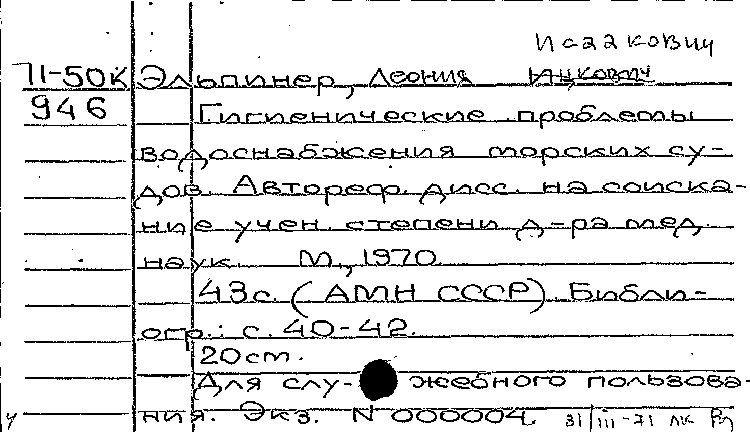 Исаакович
71-50к Эльпинер, Леония Ицкович
946 Гигиенические проблемы
водоснабжения морских су-
дов. Автореф. дисс. на соиска-
ние учен. степени д-ра мед.
наук. М., 1970.
43с. (АМН СССР). Библи-
огр.: с. 40-42.
20см.
Для слу- жебного пользова-
ния. Экз. N 000004. 31/III-71 лк